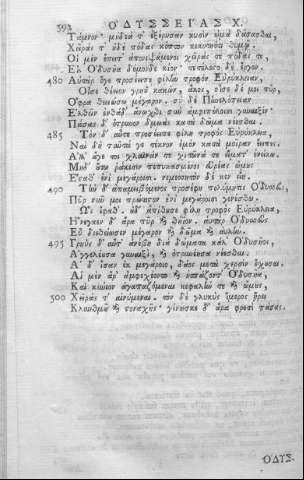 592 ΟΔΥΣΣΕΙΑΣ Χ.
Τάμνον· μήδεά τ' ἐξέρυσαν κυσὶν ὠμὰ δάσασθαι,
Χεῖράς τ' ἠδὲ πόδας κόπτον κεκοτηότι θυμῷ.
Οἱ μὲν ἔπειτ' ἀπονιψάμενοι χεῖράς τε πόδας τε,
Εἰς Ὀδυσῆα δόμονδε κίον· τετέλεστο δὲ ἔργον.
480 Αὐτὰρ ὅγε προσέειπε φίλην τροφὸν Εὐρύκλειαν,
Οἶσε θέειον γρηῢ κακῶν, ἄκος, οἶσε δέ μοι πῦρ,
Ὄφρα θεειώσω μέγαρον. σὺ δὲ Πηνελόπειαν
Ἐλθεῖν ἐνθάδ' ἄνωχθι σὺν ἀμφιπόλοισι γυναιξίν·
Πάσας δ' ὄτρυνον δμωὰς κατὰ δῶμα νέεσθαι.
485 Τὸν δ' αὖτε προσέειπε φίλη τροφὸς Εὐρύκλεια,
Ναὶ δὴ ταῦτά γε τέκνον ἐμὸν κατὰ μοῖραν ἔειπες.
Ἀλλ' ἄγε τοι χλαῖνάν τε χιτῶνά τε εἵματ' ἐνείκω.
Μηδ' οὕτω ῥάκεσιν πεπυκασμένος εὐρέας ὤμους
Ἕσταθ' ἐνὶ μεγάροισι. νεμεσσητὸν δέ κεν εἴη.
490 Τὴν δ' ἀπαμειβόμενος προσέφη πολύμητις Ὀδυσσεύς,
Πῦρ νῦν μοι πρώτιστον ἐνὶ μεγάροισι γενέσθω.
Ὣς ἔφατ'. οὐδ' ἀπίθησε φίλη τροφὸς Εὐρύκλεια,
Ἤνεγκεν δ' ἄρα πῦρ καὶ θήϊον. αὐτὰρ Ὀδυσσεὺς
Εὖ διεθείωσεν μέγαρον καὶ δῶμα καὶ αὐλήν.
495 Γρηῢς δ' αὖτ' ἀνέβη διὰ δώματα κάλ' Ὀδυσῆος,
Ἀγγελέουσα γυναιξὶ, καὶ ὀτρυνέουσα νέεσθαι.
Αἱ δ' ἴσαν ἐκ μεγάροιο, δάος μετὰ χερσὶν ἔχουσαι.
Αἱ μὲν ἄρ' ἀμφεχέοντο καὶ ἠσπάζοντ' Ὀδυσῆα,
Καὶ κύνεον ἀγαπαζόμεναι κεφαλήν τε καὶ ὤμους,
500 Χεῖράς τ' αἰνύμεναι. τὸν δὲ γλυκὺς ἵμερος ᾕρει
Κλαυθμοῦ καὶ στοναχῆς· γίνωσκε δ' ἄρα φρεσὶ πάσας.
ΟΔΥΣ.